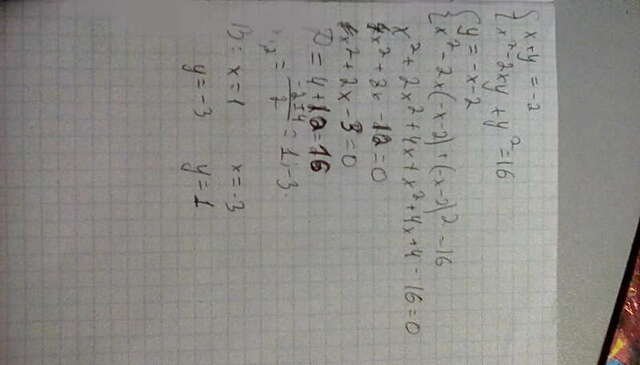 {x+y=-2
{x²-2xy+y²=16
{y=-x-2
{x²-2x(-x-2)+(-x-2)²=16
x²+2x²+4x+x²+4x+4-16=0
4x²+8x-12=0
x²+2x-3=0
D=4+12=16
x₁,₂=(-2±4)/2=1;-3.
B: x=1 x=-3
y=-3 y=1